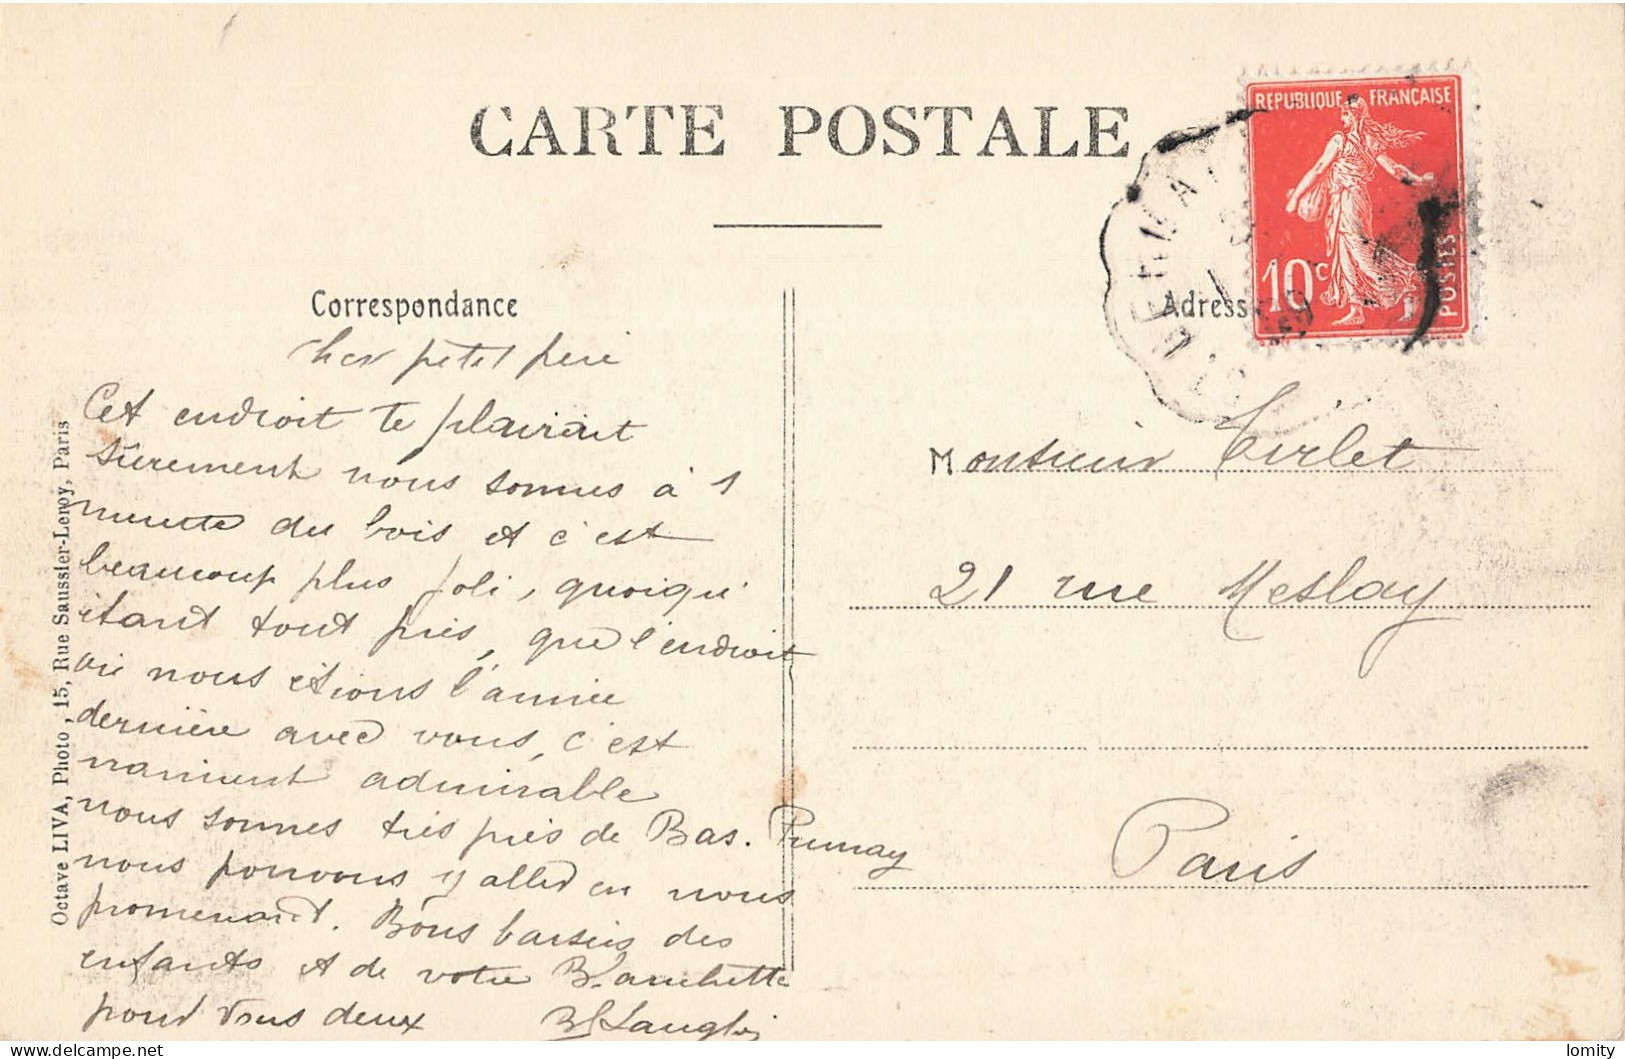 CARTE POSTALE
REPUBLIQUE FRANÇAISE
10c
POSTES
Correspondance
Cher petit père
Cet endroit te plairait
sûrement nous sommes à 1
minute du bois et c'est
beaucoup plus joli, quoiqu'
étant tout près, que l'endroit
où nous étions l'année
dernière avec vous, c'est
vraiment admirable
nous sommes très près de Bas. Prunay
nous pouvons y aller en nous
promenant. Bons baisers des
enfants et de votre Blanchette
pour vous deux Bl Langlois
Octave LIVA, Photo, 15, Rue Saussier-Leroy, Paris
Adresse
Monsieur Tirlet
21 rue Meslay
Paris
lesphilatelistes.com
lomity